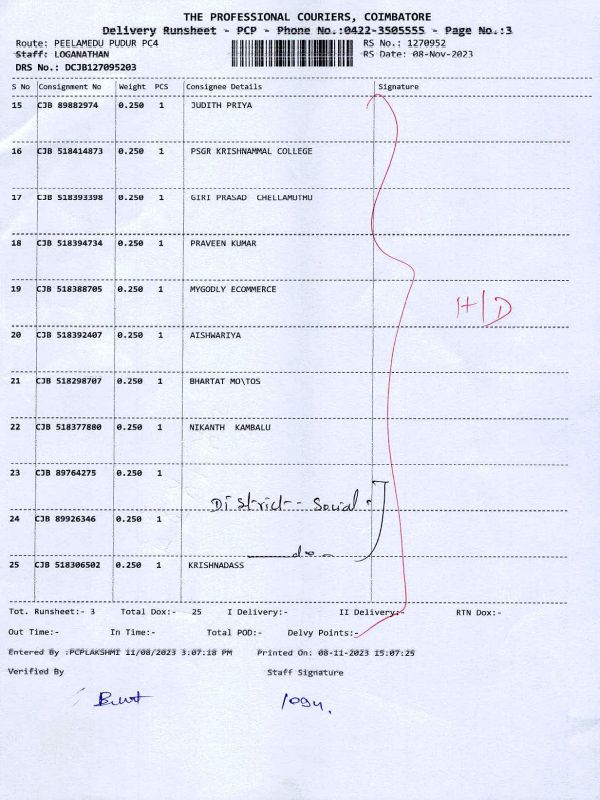 THE PROFESSIONAL COURIERS, COIMBATORE
Delivery Runsheet - PCP - Phone No.:0422-3505555 - Page No.:3
Route: PEELAMEDU PUDUR PC4 RS No.: 1270952
Staff: LOGANATHAN RS Date: 08-Nov-2023
DRS No.: DCJB127095203
S No Consignment No Weight PCS Consignee Details Signature
15 CJB 89882974 0.250 1 JUDITH PRIYA
16 CJB 518414873 0.250 1 PSGR KRISHNAMMAL COLLEGE
17 CJB 518393398 0.250 1 GIRI PRASAD CHELLAMUTHU
18 CJB 518394734 0.250 1 PRAVEEN KUMAR
19 CJB 518388705 0.250 1 MYGODLY ECOMMERCE
H/D
20 CJB 518392407 0.250 1 AISHWARIYA
21 CJB 518298707 0.250 1 BHARTAT MO\TOS
22 CJB 518377880 0.250 1 NIKANTH KAMBALU
23 CJB 89764275 0.250 1
District - Social
24 CJB 89926346 0.250 1
do
25 CJB 518306502 0.250 1 KRISHNADASS
Tot. Runsheet:- 3 Total Dox:- 25 I Delivery:- II Delivery:- RTN Dox:-
Out Time:- In Time:- Total POD:- Delvy Points:-
Entered By :PCPLAKSHMI 11/08/2023 3:07:18 PM Printed On: 08-11-2023 15:07:25
Verified By Staff Signature
logu.